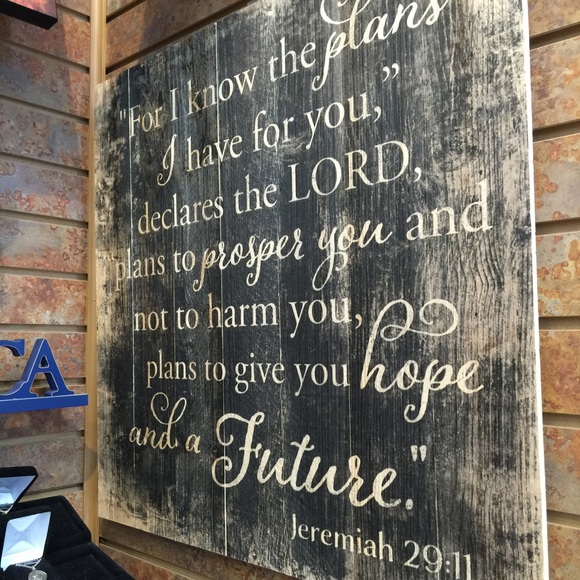 "For I know the plans
I have for you,”
declares the LORD,
plans to prosper you and
not to harm you,
plans to give you hope
and a Future."
Jeremiah 29:11
CA